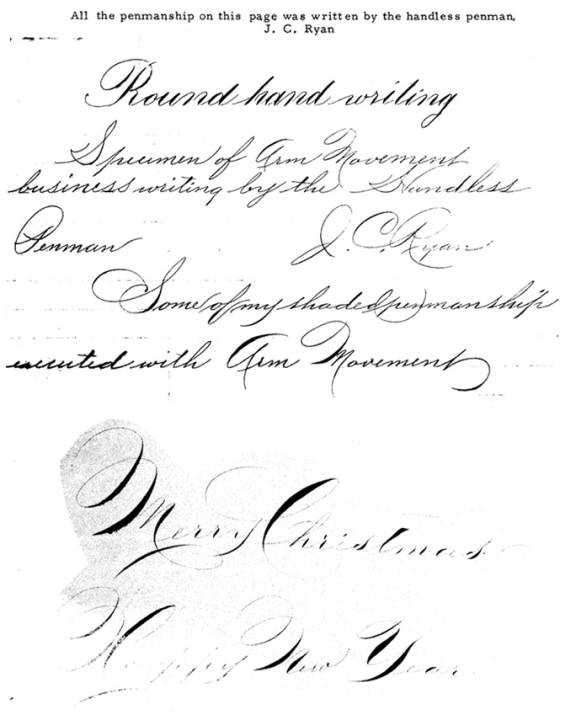 All the penmanship on this page was written by the handless penman,
J. C. Ryan
Round hand writing
Specimen of Arm Movement
business writing by the Handless
Penman J. C. Ryan
Some of my shaded penmanship
executed with Arm Movement
Merry Christmas
Happy New Year